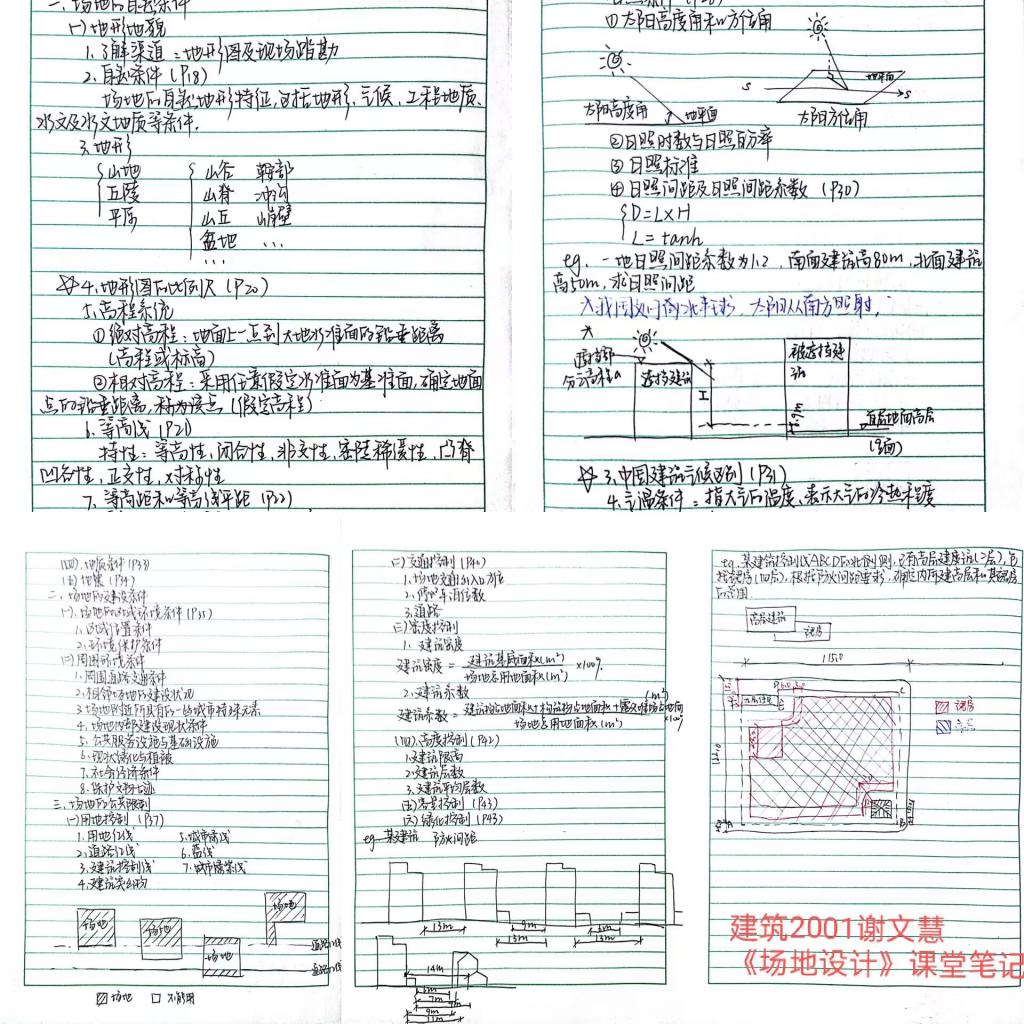 一.场地的自然条件
(一)地形地貌
1.了解渠道:地形图及现场踏勘
2.自然条件(P18)
场地的自然地形特征,包括地形、气候、工程地质、
水文及水文地质等条件.
3.地形
山地 山谷 鞍部
丘陵 山脊 冲沟
平原 山丘 峭壁
盆地 ...
...
☆4.地形图的比例尺(P20)
5.高程系统
①绝对高程:地面上一点到大地水准面的铅垂距离
(高程或标高)
②相对高程:采用任意假定水准面为基准面,确定地面
点的铅垂距离,称为该点(假定高程)
6.等高线(P21)
特性:等高性,闭合性,非交性,密陡稀缓性,凸脊
凹谷性,正交性,对称性
7.等高距和等高线平距(P22)
①太阳高度角和方位角
太阳高度角 地平面
地平面
S S
太阳方位角
②日照时数与日照百分率
③日照标准
④日照间距及日照间距系数(P30)
D=L×H
L=tanh
eg. 一地日照间距系数为1.2,南面建筑高80m,北面建筑
高50m,求日照间距
太阳从南方照射.
遮挡建筑
被遮挡建筑
H
0.9m
首层地面高层
☆3.中国建筑气候区划(P31)
4.气温条件:指大气的温度,表示大气的冷热程度
(四).地质条件(P33)
(五)地震(P34)
二.场地的建设条件
(一).场地的区域环境条件(P35)
1.区域位置条件
2.环境保护条件
(二)周围环境条件
1.周围道路交通条件
2.相邻场地的建设状况
3.场地附近所具有的一些城市特殊元素
4.场地内部建设现状条件
5.公共服务设施与基础设施
6.现状绿化与植被
7.社会经济条件
8.保护文物古迹
三.场地的公共限制
(一)用地控制(P37)
1.用地红线 5.城市绿线
2.道路红线 6.蓝线
3.建筑控制线 7.城市紫线
4.建筑突出物
场地
场地
场地
场地
道路红线
道路红线
场地 不能用
(二)交通控制(P40)
1.场地交通出入口方位
2.停车泊位数
3.道路
(三)密度控制
1.建筑密度
建筑密度=建筑基底面积(m²)/场地总用地面积(m²)×100%
2.建筑系数
(四)高度控制(P42)
1.建筑限高
2.建筑层数
3.建筑平均层数
(五)容量控制(P43)
(六)绿化控制(P43)
eg 某建筑 防火间距
13m 9m
13m 13m
14m
6m
7m
9m
11m
高层建筑
裙房
115.0
裙房
高层
建筑2001谢文慧
《场地设计》课堂笔记